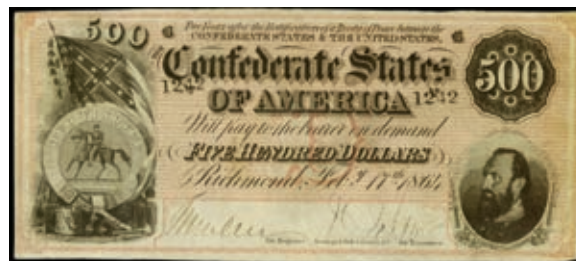 500
Two Years after the Ratification of a Treaty of Peace between the
CONFEDERATE STATES & THE UNITED STATES,
Confederate States
500
1242
OF AMERICA
1242
Will pay to the bearer on demand
FIVE HUNDRED DOLLARS
Richmond, Feb. 17th 1864